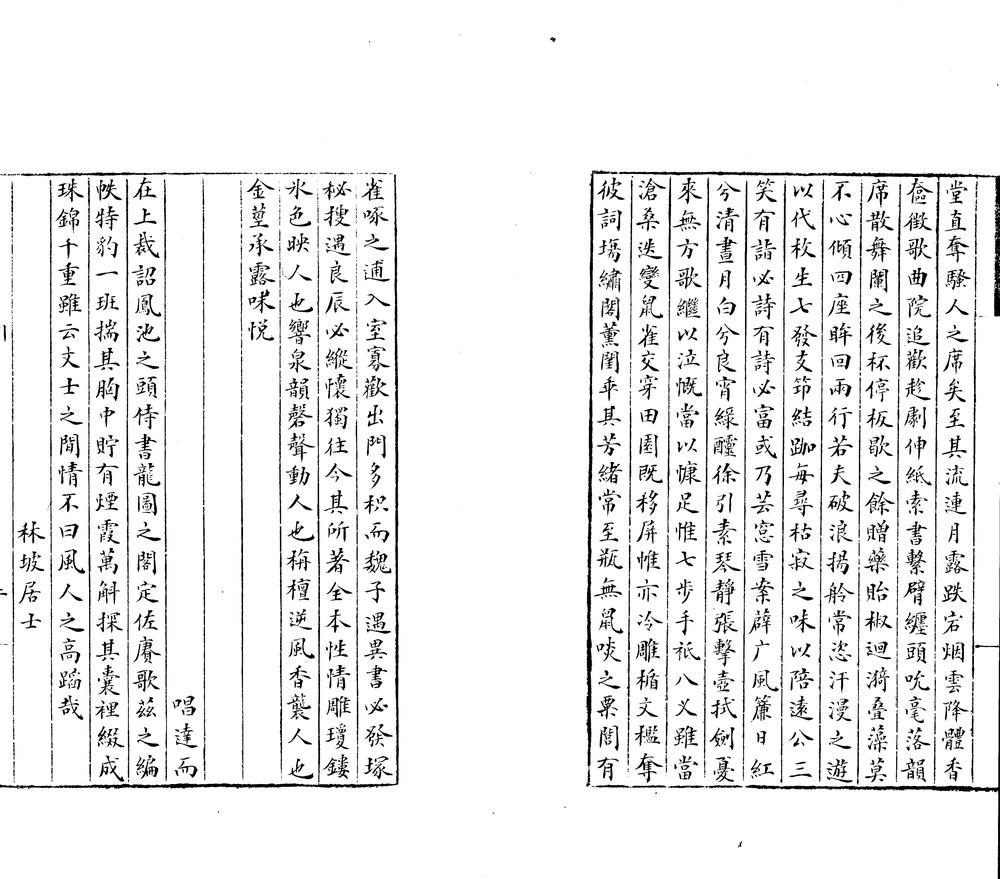 堂直奪騷人之席矣至其流連月露跌宕烟雲降體香
奩徵歌曲院追歡趁劇伸紙索書繫臂纏頭吮毫落韻
席散舞闌之後杯停板歇之餘贈藥貽椒迴漪疊藻莫
不心傾四座眸回兩行若夫破浪揚舲常恣汗漫之遊
以代枚生七發支笻結跏每尋枯寂之味以陪遠公三
笑有詣必詩有詩必富或乃芸窓雪案薜广風簾日紅
兮清晝月白兮良宵綠醽徐引素琴靜張擊壺拭劍憂
來無方歌繼以泣慨當以慷足惟七步手祗八义雖當
滄桑迭變鼠雀交穿田園既移屏帷亦冷雕楯文檻奪
彼詞塲繡閣薰閨乖其芳緒常至瓶無鼠啖之粟閤有
雀啄之逋入室寡歡出門多枳而魏子遇異書必發塚
秘搜遇良辰必縱懷獨往今其所著全本性情雕瓊鏤
氷色映人也響泉韻磬聲動人也栴檀逆風香襲人也
金莖承露味悅
唱達而
在上裁詔鳳池之頭侍書龍圖之閣定佐賡歌茲之編
帙特豹一班揣其胸中貯有煙霞萬斛探其囊裡綴成
珠錦千重雖云文士之閒情不曰風人之高蹈哉
林坡居士